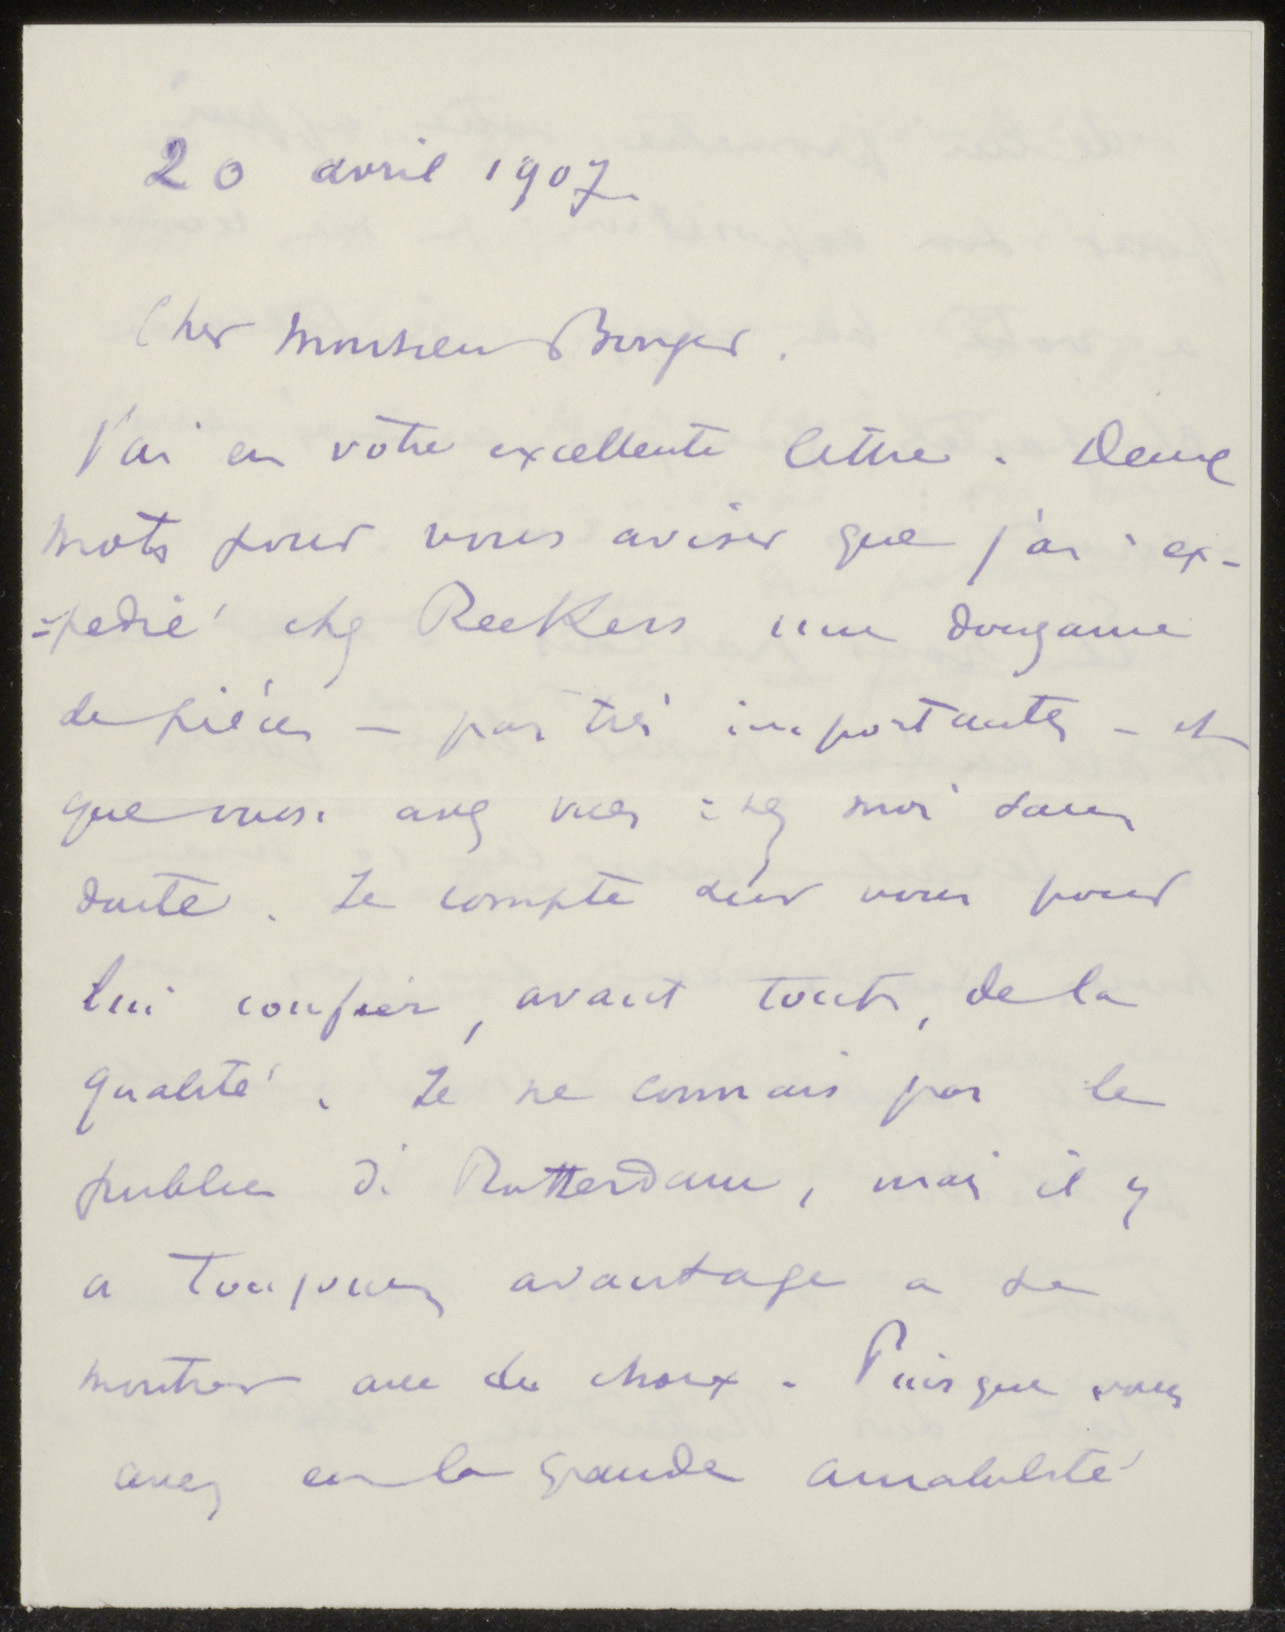 20 avril 1907
Cher Monsieur Bonger.
J'ai eu votre excellente lettre. Deux
mots pour vous aviser que j'ai ex-
=pedié chez Reekers une douzaine
de pièces – pas très importantes – et
que vous avez vues chez moi sans
doute. Je compte sur vous pour
lui confier, avant tout, de la
qualité. Je ne connais pas le
public de Rotterdam, mais il y
a toujours avantage a se
montrer avec du choix. Puisque vous
avez eu la grande amabilité